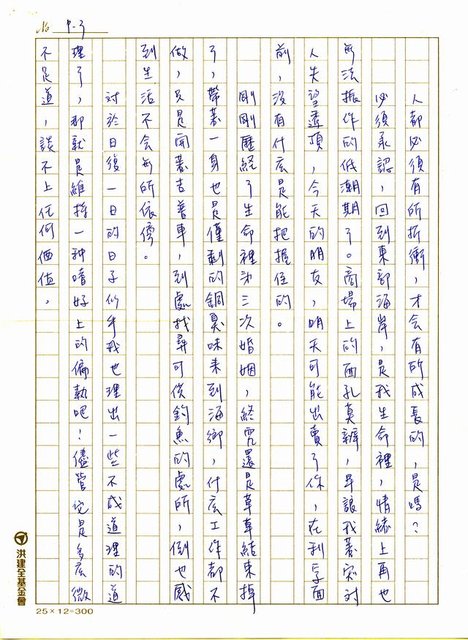 No 9-3
人都必須有所折衝,才会有所成長的,是嗎?
必須承認,回到東部海岸,是我生命裡,情緒上再也
無法振作的低潮期了。商場上的面孔莫辨,早讓我著实对
人失望透頂,今天的朋友,明天可能出賣了你,在利字面
前,沒有什庅是能把握住的。
剛剛歷経了生命裡第三次婚姻,終究還是草草結束掉
了,帶著一身也是僅剩的銅臭味来到海鄉,什庅工作都不
做,只是開著吉普車,到處找尋可供釣魚的處所,倒也感
到生活不会無所依傍。
对於日復一日的日子似乎我也理出一些不成道理的道
理了,那就是維持一种嗜好上的偏執吧!儘管它是多庅微
不足道,談不上任何価值。
洪建全基金會
25×12=300